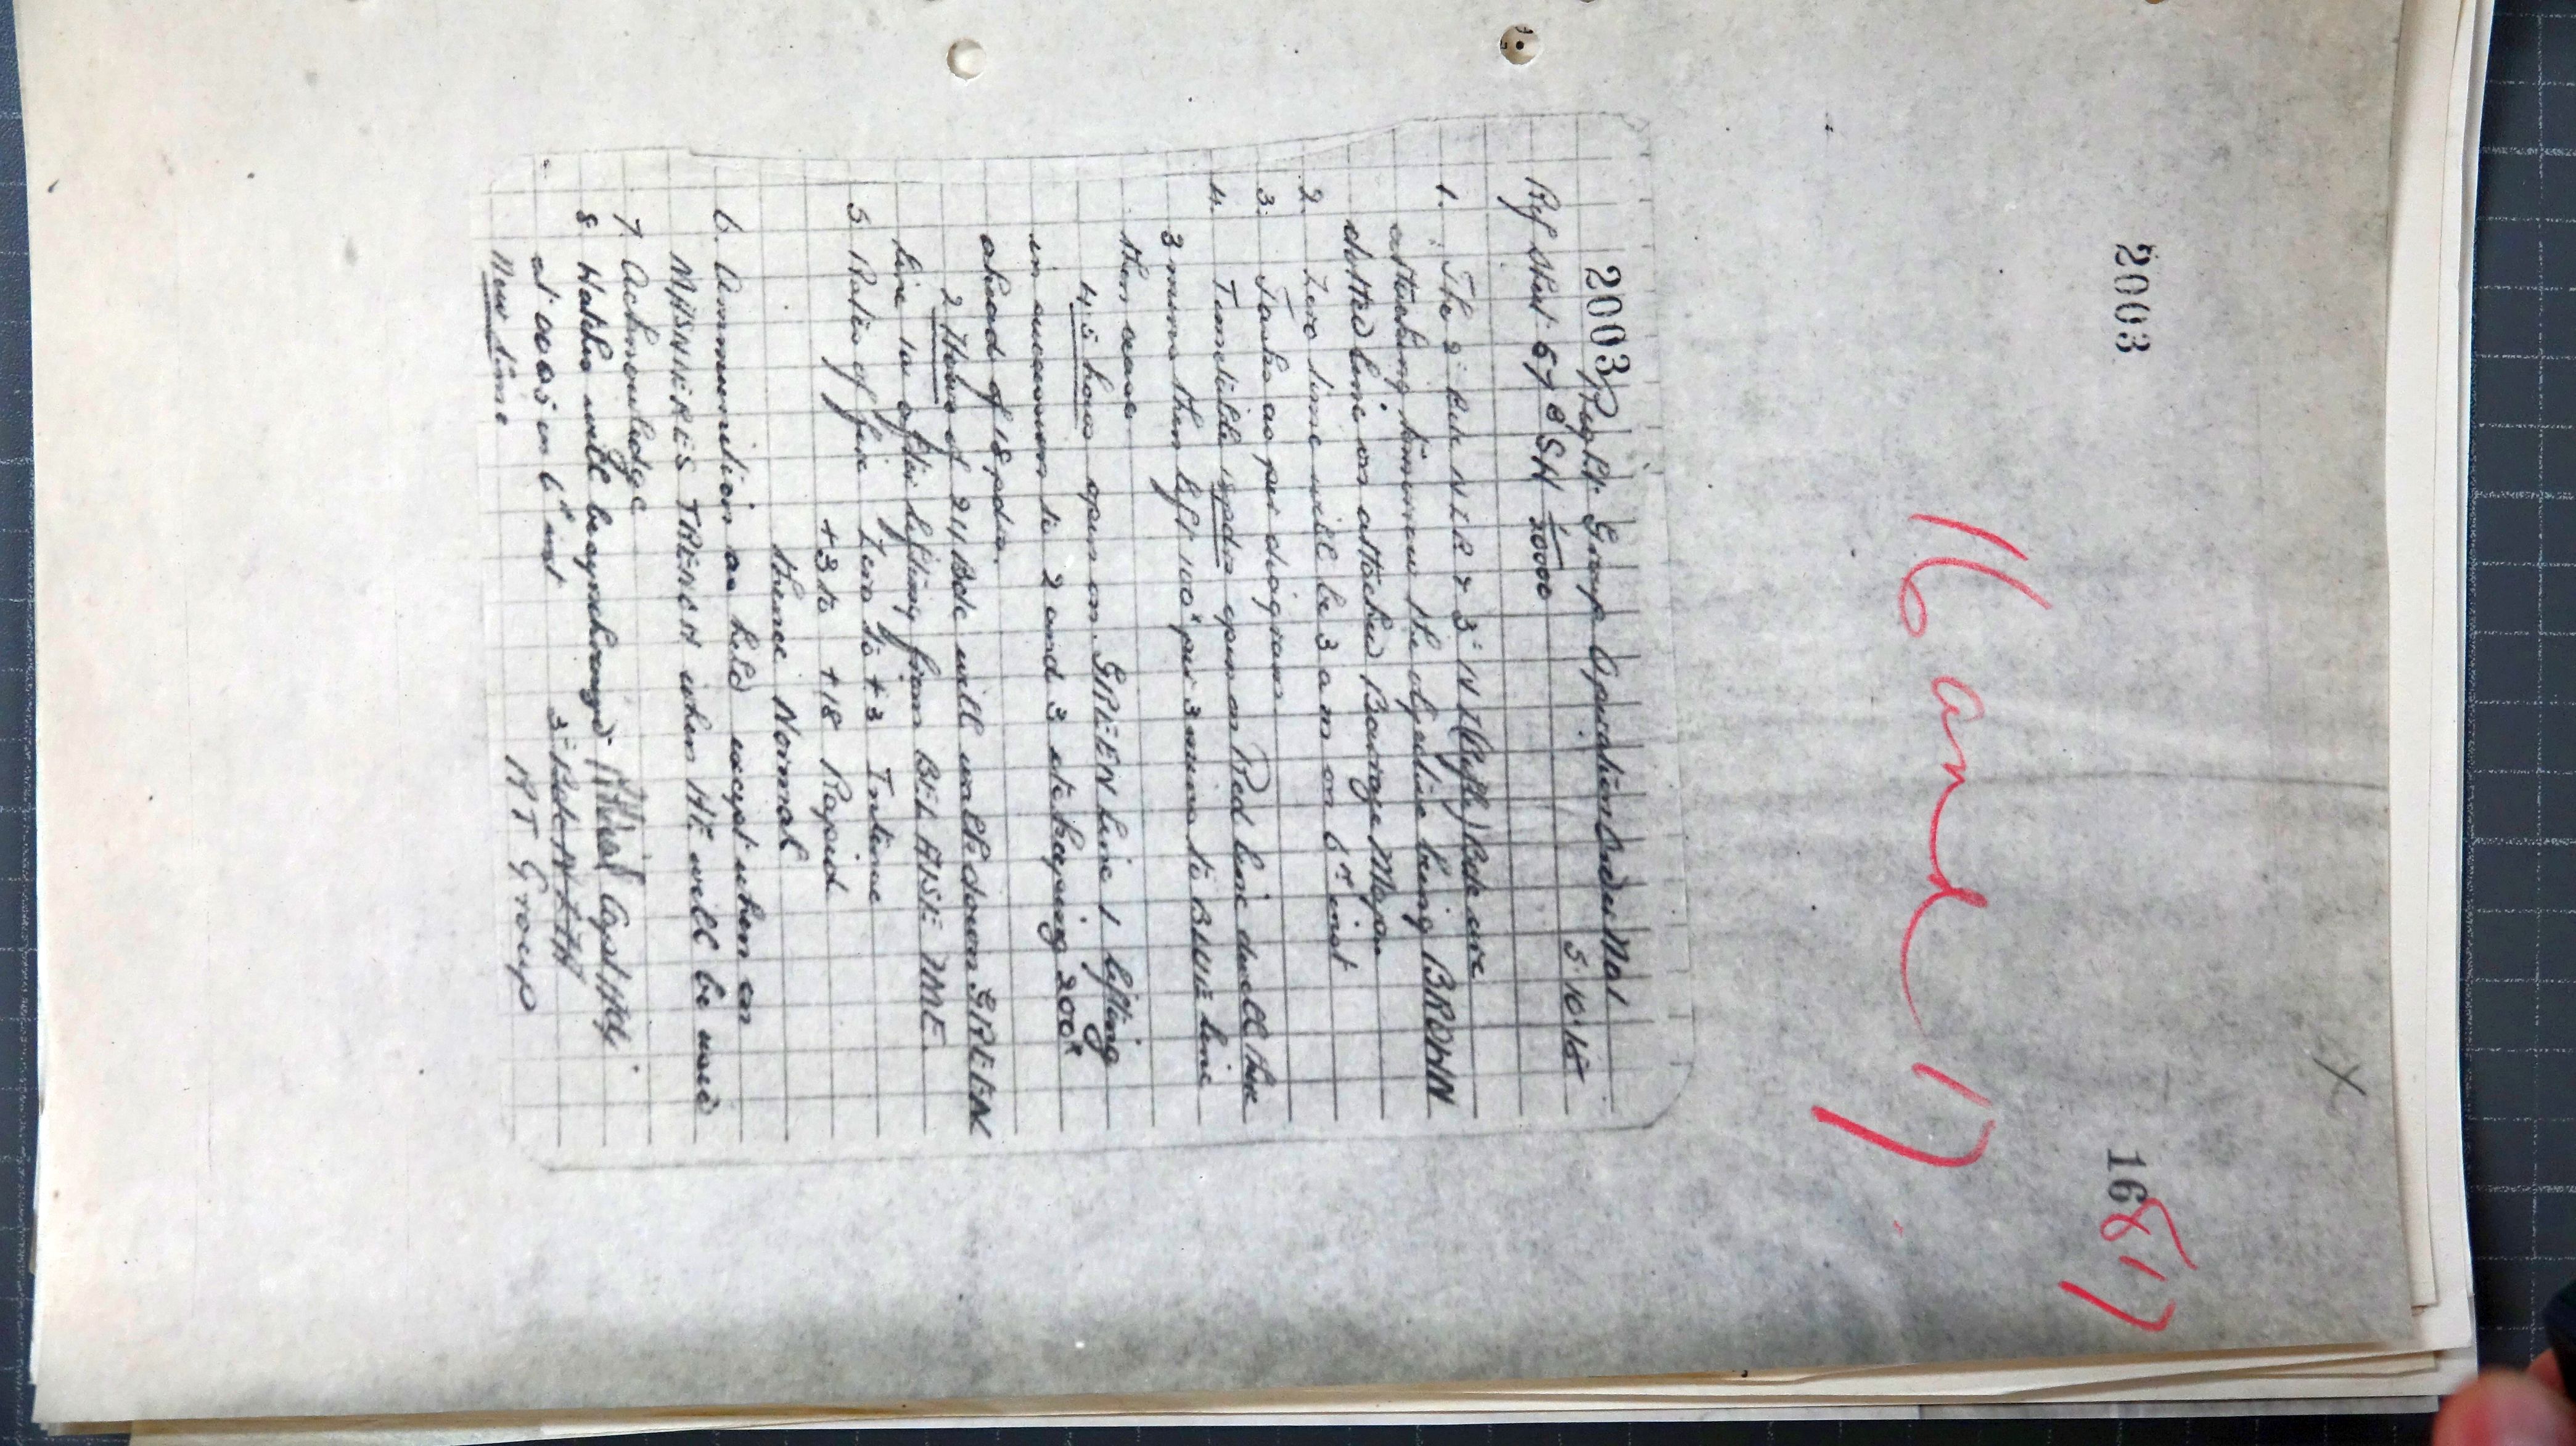 2003
1687
X
16 and 17
2003 Right Group Operation Order No 1
5.10.18
Ref Sheet 57 B SW 1/20000
1. The 2nd Bde NZR & 3rd NZ (Rifle) Bde are
attacking tomorrow the objective being BROWN
dotted line on attached Barrage Map
2. Zero time will be 3 am on 6th inst
3. Tasks as per diagram
4. Timetable 18pdrs open on Red line dwell there
3 mins then lift 100x per 3 mins to BLUE line
then cease
4.5 hows open on GREEN line 1 lifting
in succession to 2 and 3 etc keeping 200x
ahead of 18 pdrs.
2 Hows of 241 Bde will walk down GREEN
line 10 after lifting from BEL AISE FME.
5. Rates of fire Zero to +3 Intense
+3 to +18 Rapid
thence Normal
6. Ammunition as held except when on
MASNIERES TRENCH when HE will be used
7. Acknowledge
8 Watches will be synchronized Capt Adj
at 0005 on 6th inst 3rd Bde NZFA
New time RT Group